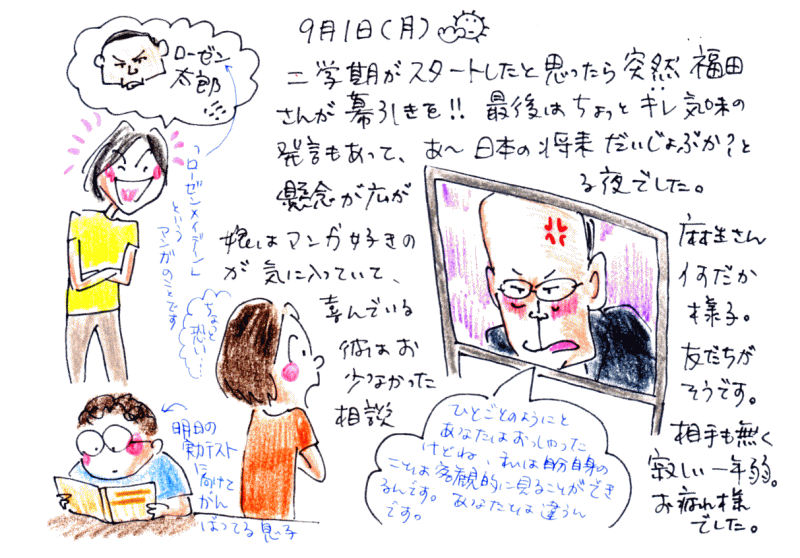 9月1日(月)
二学期がスタートしたと思ったら突然福田
さんが幕引きを!! 最後はちょっとキレ気味の
発言もあって、あ〜日本の将来だいじょぶか?と
懸念が広が
る夜でした。
娘はマンガ好きの
麻生さん
が気に入っていて、
何だか
喜んでいる
様子。
彼はお
友だちが
少なかった
そうです。
相談
相手も無く
寂しい一年弱。
お疲れ様
でした。
ローゼン
太郎
「ローゼンメイデン」
という
マンガのことです
ちょっと
恐い…
明日の
実力テスト
に向けて
がん
ばってる息子
ひとごとのようにと
あなたはおっしゃった
けどね、私は自分自身の
ことは客観的に見ることができ
るんです。あなたとは違うん
です。